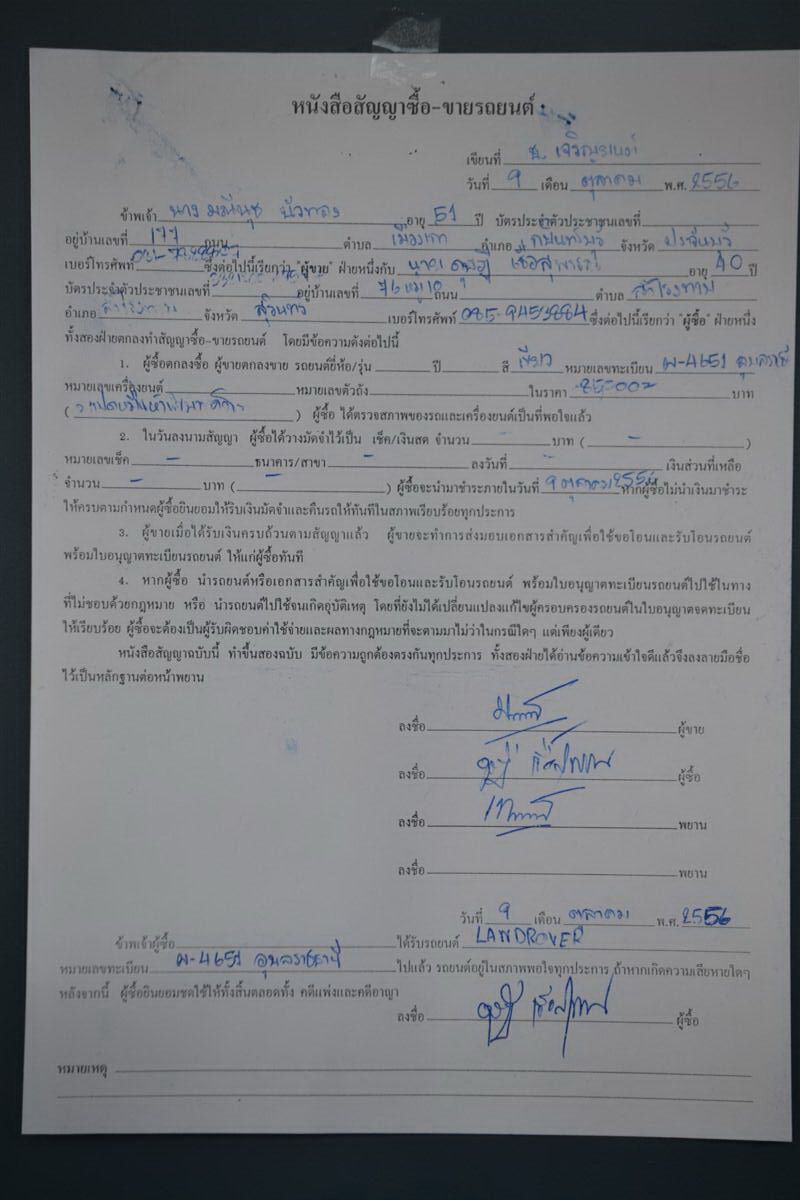 หนังสือสัญญาซื้อ-ขายรถยนต์
เขียนที่
วันที่ 9 เดือน ตุลาคม พ.ศ. 2556
ข้าพเจ้า นาง อายุ 51 ปี บัตรประจำตัวประชาชนเลขที่
อยู่บ้านเลขที่ 177 ถนน ตำบล อำเภอ จังหวัด
เบอร์โทรศัพท์ ซึ่งต่อไปนี้เรียกว่า "ผู้ขาย" ฝ่ายหนึ่งกับ อายุ 40 ปี
บัตรประจำตัวประชาชนเลขที่ อยู่บ้านเลขที่ ถนน ตำบล สำโรงทาบ
อำเภอ สำโรงทาบ จังหวัด สุรินทร์ เบอร์โทรศัพท์ ซึ่งต่อไปนี้เรียกว่า "ผู้ซื้อ" ฝ่ายหนึ่ง
ทั้งสองฝ่ายตกลงทำสัญญาซื้อ-ขายรถยนต์ โดยมีข้อความดังต่อไปนี้
1. ผู้ซื้อตกลงซื้อ ผู้ขายตกลงขาย รถยนต์ยี่ห้อ/รุ่น ปี สี เขียว หมายเลขทะเบียน ผ-4651 อุบลราชธานี
หมายเลขเครื่องยนต์ หมายเลขตัวถัง ในราคา บาท
( ) ผู้ซื้อ ได้ตรวจสภาพของรถและเครื่องยนต์เป็นที่พอใจแล้ว
2. ในวันลงนามสัญญา ผู้ซื้อได้วางมัดจำไว้เป็น เช็ค/เงินสด จำนวน - บาท ( - )
หมายเลขเช็ค - ธนาคาร/สาขา - ลงวันที่ - เงินส่วนที่เหลือ
จำนวน - บาท ( - ) ผู้ซื้อจะนำมาชำระภายในวันที่ 9 ตุลาคม 2556 หากผู้ซื้อไม่นำเงินมาชำระ
ให้ครบตามกำหนดผู้ซื้อยินยอมให้ริบเงินมัดจำและคืนรถให้ทันทีในสภาพเรียบร้อยทุกประการ
3. ผู้ขายเมื่อได้รับเงินครบถ้วนตามสัญญาแล้ว ผู้ขายจะทำการส่งมอบเอกสารสำคัญเพื่อใช้ขอโอนและรับโอนรถยนต์
พร้อมใบอนุญาตทะเบียนรถยนต์ ให้แก่ผู้ซื้อทันที
4. หากผู้ซื้อ นำรถยนต์หรือเอกสารสำคัญเพื่อใช้ขอโอนและรับโอนรถยนต์ พร้อมใบอนุญาตทะเบียนรถยนต์ไปใช้ในทาง
ที่ไม่ชอบด้วยกฎหมาย หรือ นำรถยนต์ไปใช้จนเกิดอุบัติเหตุ โดยที่ยังไม่ได้เปลี่ยนแปลงแก้ไขผู้ครอบครองรถยนต์ในใบอนุญาตจดทะเบียน
ให้เรียบร้อย ผู้ซื้อจะต้องเป็นผู้รับผิดชอบค่าใช้จ่ายและผลทางกฎหมายที่จะตามมาไม่ว่าในกรณีใดๆ แต่เพียงผู้เดียว
หนังสือสัญญาฉบับนี้ ทำขึ้นสองฉบับ มีข้อความถูกต้องตรงกันทุกประการ ทั้งสองฝ่ายได้อ่านข้อความเข้าใจดีแล้วจึงลงลายมือชื่อ
ไว้เป็นหลักฐานต่อหน้าพยาน
ลงชื่อ ผู้ขาย
ลงชื่อ ผู้ซื้อ
ลงชื่อ พยาน
ลงชื่อ พยาน
วันที่ 9 เดือน ตุลาคม พ.ศ. 2556
ข้าพเจ้าผู้ซื้อ ได้รับรถยนต์ LANDROVER
หมายเลขทะเบียน ผ-4651 อุบลราชธานี ไปแล้ว รถยนต์อยู่ในสภาพพอใจทุกประการ ถ้าหากเกิดความเสียหายใดๆ
หลังจากนี้ ผู้ซื้อยินยอมชดใช้ให้ทั้งสิ้นตลอดทั้ง คดีแพ่งและคดีอาญา
ลงชื่อ ผู้ซื้อ
หมายเหตุ